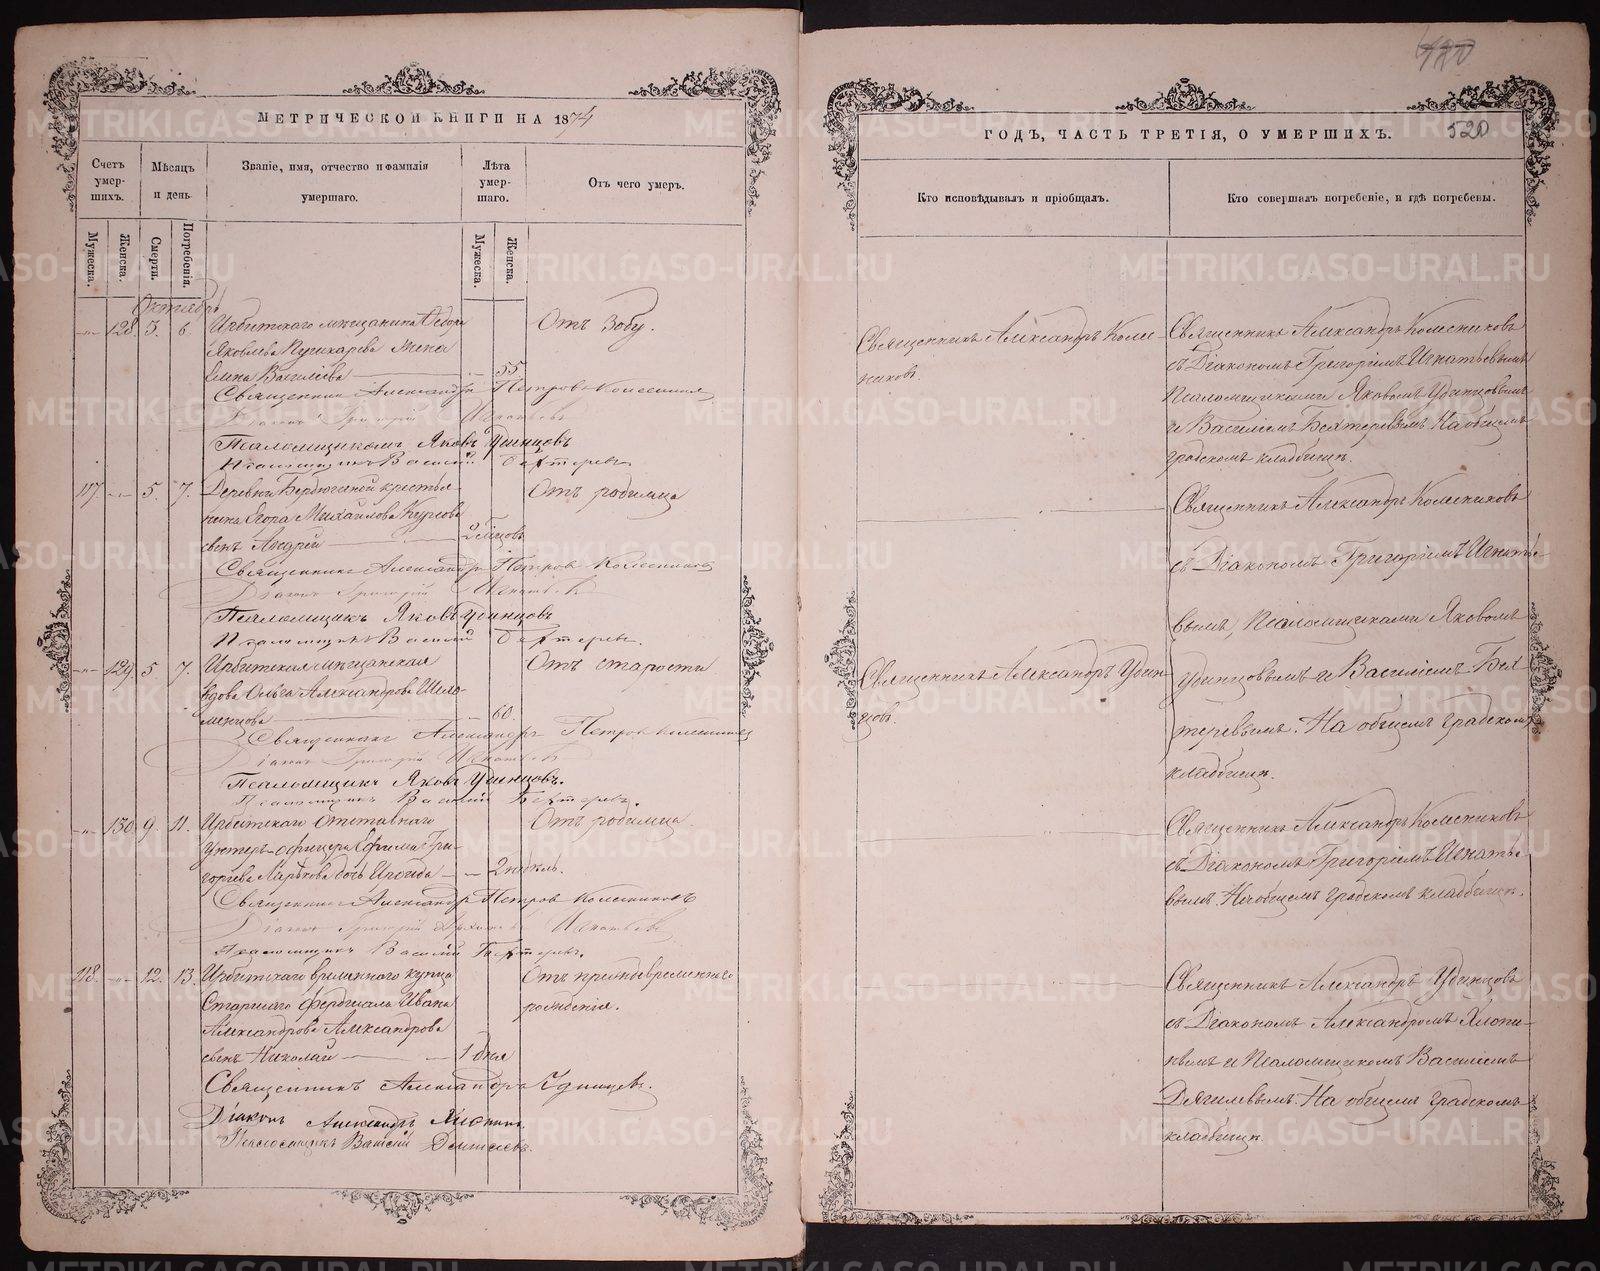 МЕТРИЧЕСКОЙ КНИГИ НА 1874
Счетъ умер- шихъ.
Мѣсяцъ и день.
Званіе, имя, отчество и фамилія умершаго.
Лѣта умер- шаго.
Отъ чего умеръ.
Мужеска.
Женска.
Смерти.
Погребенія.
Мужеска.
Женска.
Октябрь
128. 5. 6. Ирбитскаго мѣщанина Ѳедора Отъ зобу.
Яковлева Пушкарева жена
Елена Василіева 55
Священникъ Александръ Петровъ Колесников
Діаконъ Григорій Игнатьевъ
Псаломщикъ Яковъ Удинцовъ
Псаломщикъ Василій Бехтеревъ.
117. 5. 7. Деревни крестья- Отъ родимца
нина Егора Михайлова
сынъ Андрей 2 мѣсяцовъ
Священникъ Александръ Петровъ Колесников
Діаконъ Григорій Игнатьевъ
Псаломщикъ Яковъ Удинцовъ
Псаломщикъ Василій Бехтеревъ.
129. 5. 7. Ирбитская мѣщанская Отъ старости
вдова Ольга Александрова Шело-
менцова 60.
Священникъ Александръ Петровъ Колесников
Діаконъ Григорій Игнатьевъ
Псаломщикъ Яковъ Удинцовъ.
Псаломщикъ Василій Бехтеревъ.
130. 9. 11. Ирбитскаго отставнаго Отъ родимца
Унтеръ-офицера Ефима Гри-
горьева дочь 2 недѣль.
Священникъ Александръ Петровъ Колесниковъ
Діаконъ Григорій Игнатьевъ
Псаломщикъ Василій Бехтеревъ.
118. 12. 13. Ирбитскаго временнаго купца Отъ преждевременнаго
Ивана рожденія.
Александрова Александрова
сынъ Николай 1 дня
Священникъ Александръ Удинцевъ.
Діаконъ Александръ Хлопинъ
Псаломщикъ Василій Дягилевъ.
120
520
ГОДЪ, ЧАСТЬ ТРЕТІЯ, О УМЕРШИХЪ.
Кто исповѣдывалъ и пріобщалъ.
Кто совершалъ погребеніе, и гдѣ погребены.
Священникъ Александръ Колес-
никовъ.
Священникъ Александръ Колесниковъ
съ Діакономъ Григоріемъ Игнатьевымъ
Псаломщиками Яковомъ Удинцовымъ
и Василіемъ Бехтеревымъ. На общемъ
градскомъ кладбищѣ.
Священникъ Александръ Колесниковъ
съ Діакономъ Григоріемъ Игнатье-
вымъ, Псаломщиками Яковомъ
Священникъ Александръ Удин-
цовъ.
Удинцовымъ и Василіемъ Бех-
теревымъ. На общемъ градскомъ
кладбищѣ.
Священникъ Александръ Колесниковъ
съ Діакономъ Григоріемъ Игнатье-
вымъ. На общемъ градскомъ кладбищѣ.
Священникъ Александръ Удинцовъ
съ Діакономъ Александромъ Хлопи-
нымъ и Псаломщикомъ Василіемъ
Дягилевымъ. На общемъ градскомъ
кладбищѣ.
METRIKI.GASO-URAL.RU